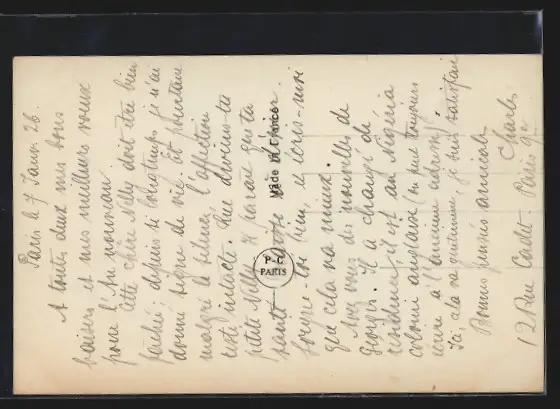 Paris le 7 Janv. 26.
A toutes deux mes bons
baisers et mes meilleurs voeux
pour l'An nouveau.
Cette chère Nelly doit être bien
fachée, depuis si longtemps je n'ai
donné signe de vie. Et pourtant
malgré le silence, l'affection
reste intacte. Que deviens-tu
petite Nelly. Il parait que ta
santé laisse à désirer.
Soigne-toi bien, et écris-moi
que cela va mieux.
Avez-vous des nouvelles de
Georges. Il a changé de
résidence, il est au Nigéria
colonie anglaise (tu peux toujours
écrire à l'ancienne adresse).
Ici cela va gentiment, je suis satisfait
Bonnes pensées amicales
Charles
12 Rue Cadet Paris 9e
Made in France
P-C
PARIS